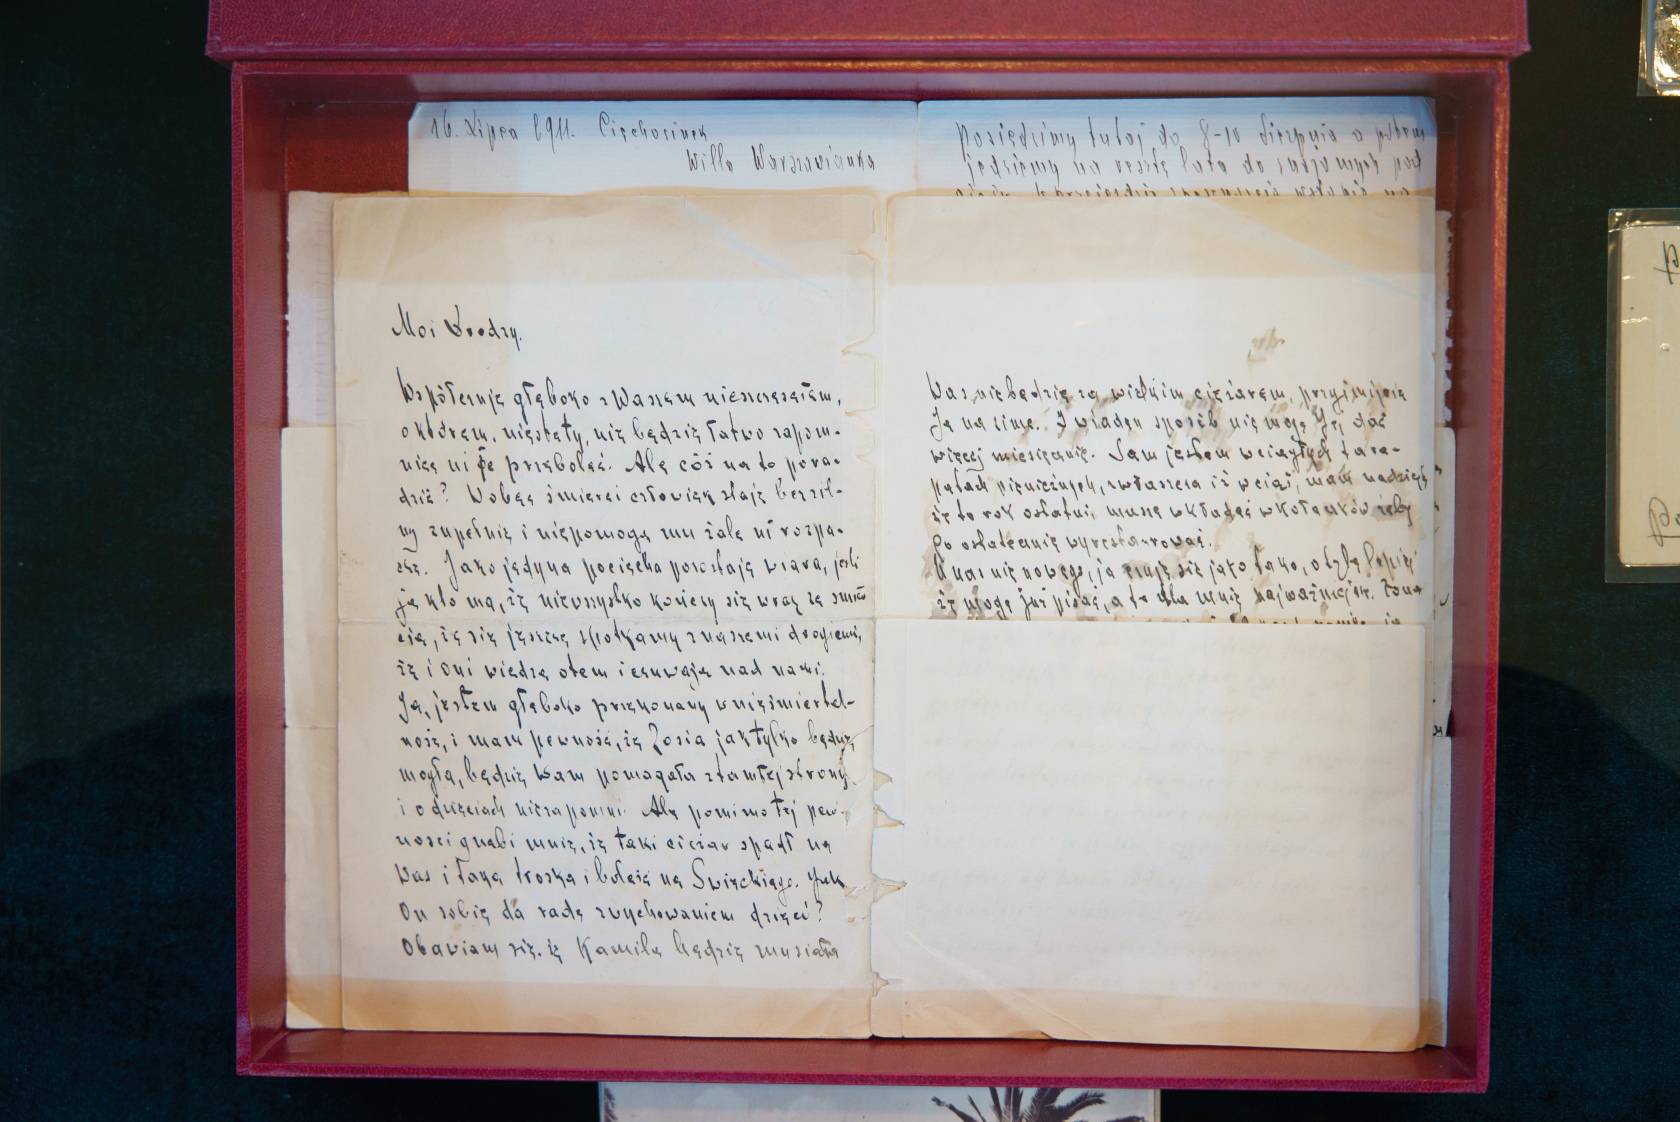 16. Lipca 1911. Ciechocinek
Willa Warszawianka
posiedzimy tutaj do 8-10 Sierpnia a potem
jedziemy na resztę lata do pod
Moi Drodzy.
Współczuję głęboko z Waszem nieszczęściem,
o którem, niestety, nie będzie łatwo zapom-
nieć ni je przeboleć. Ale cóż na to pora-
dzić? Wobec śmierci człowiek staje bezsil-
ny zupełnie i niepomogą mu żale ni rozpa-
cze. Jako jedyna pociecha pozostaje wiara, jeśli
ją kto ma, iż niewszystko kończy się wraz ze śmier-
cią, iż się jeszcze spotkamy z naszemi drogiemi,
iż i oni wiedzą otem i czuwają nad nami.
Ja, jestem głęboko przekonany w nieśmiertel-
ność, i mam pewność, iż Zosia jak tylko będzie
mogła, będzie Wam pomagała z tamtej strony
i o dzieciach niezapomni. Ale pomimo tej pew-
ności gnębi mnie, iż taki ciężar spadł na
Was i taka troska i boleść na Święckiego. Jak
On sobie da radę z wychowaniem dzieci?
Obawiam się, iż Kamila będzie musiała
Was, nie będzie za wielkim ciężarem, przyjmijcie
Ją na zimę. Żadeń sposób nie mogę Jej dać
więcej miesięcznie. Sam jestem w ciągłych tara-
patach pieniężnych, zwłaszcza iż wciąż, mam nadzieję
iż to rok ostatni, muszę wkładać w Kołaków żeby
go ostatecznie wyrestaurować.
U nas nic nowego, ja czuję się jako tako, o tyle lepiej
iż mogę już pisać, a to dla mnie najważniejsze.